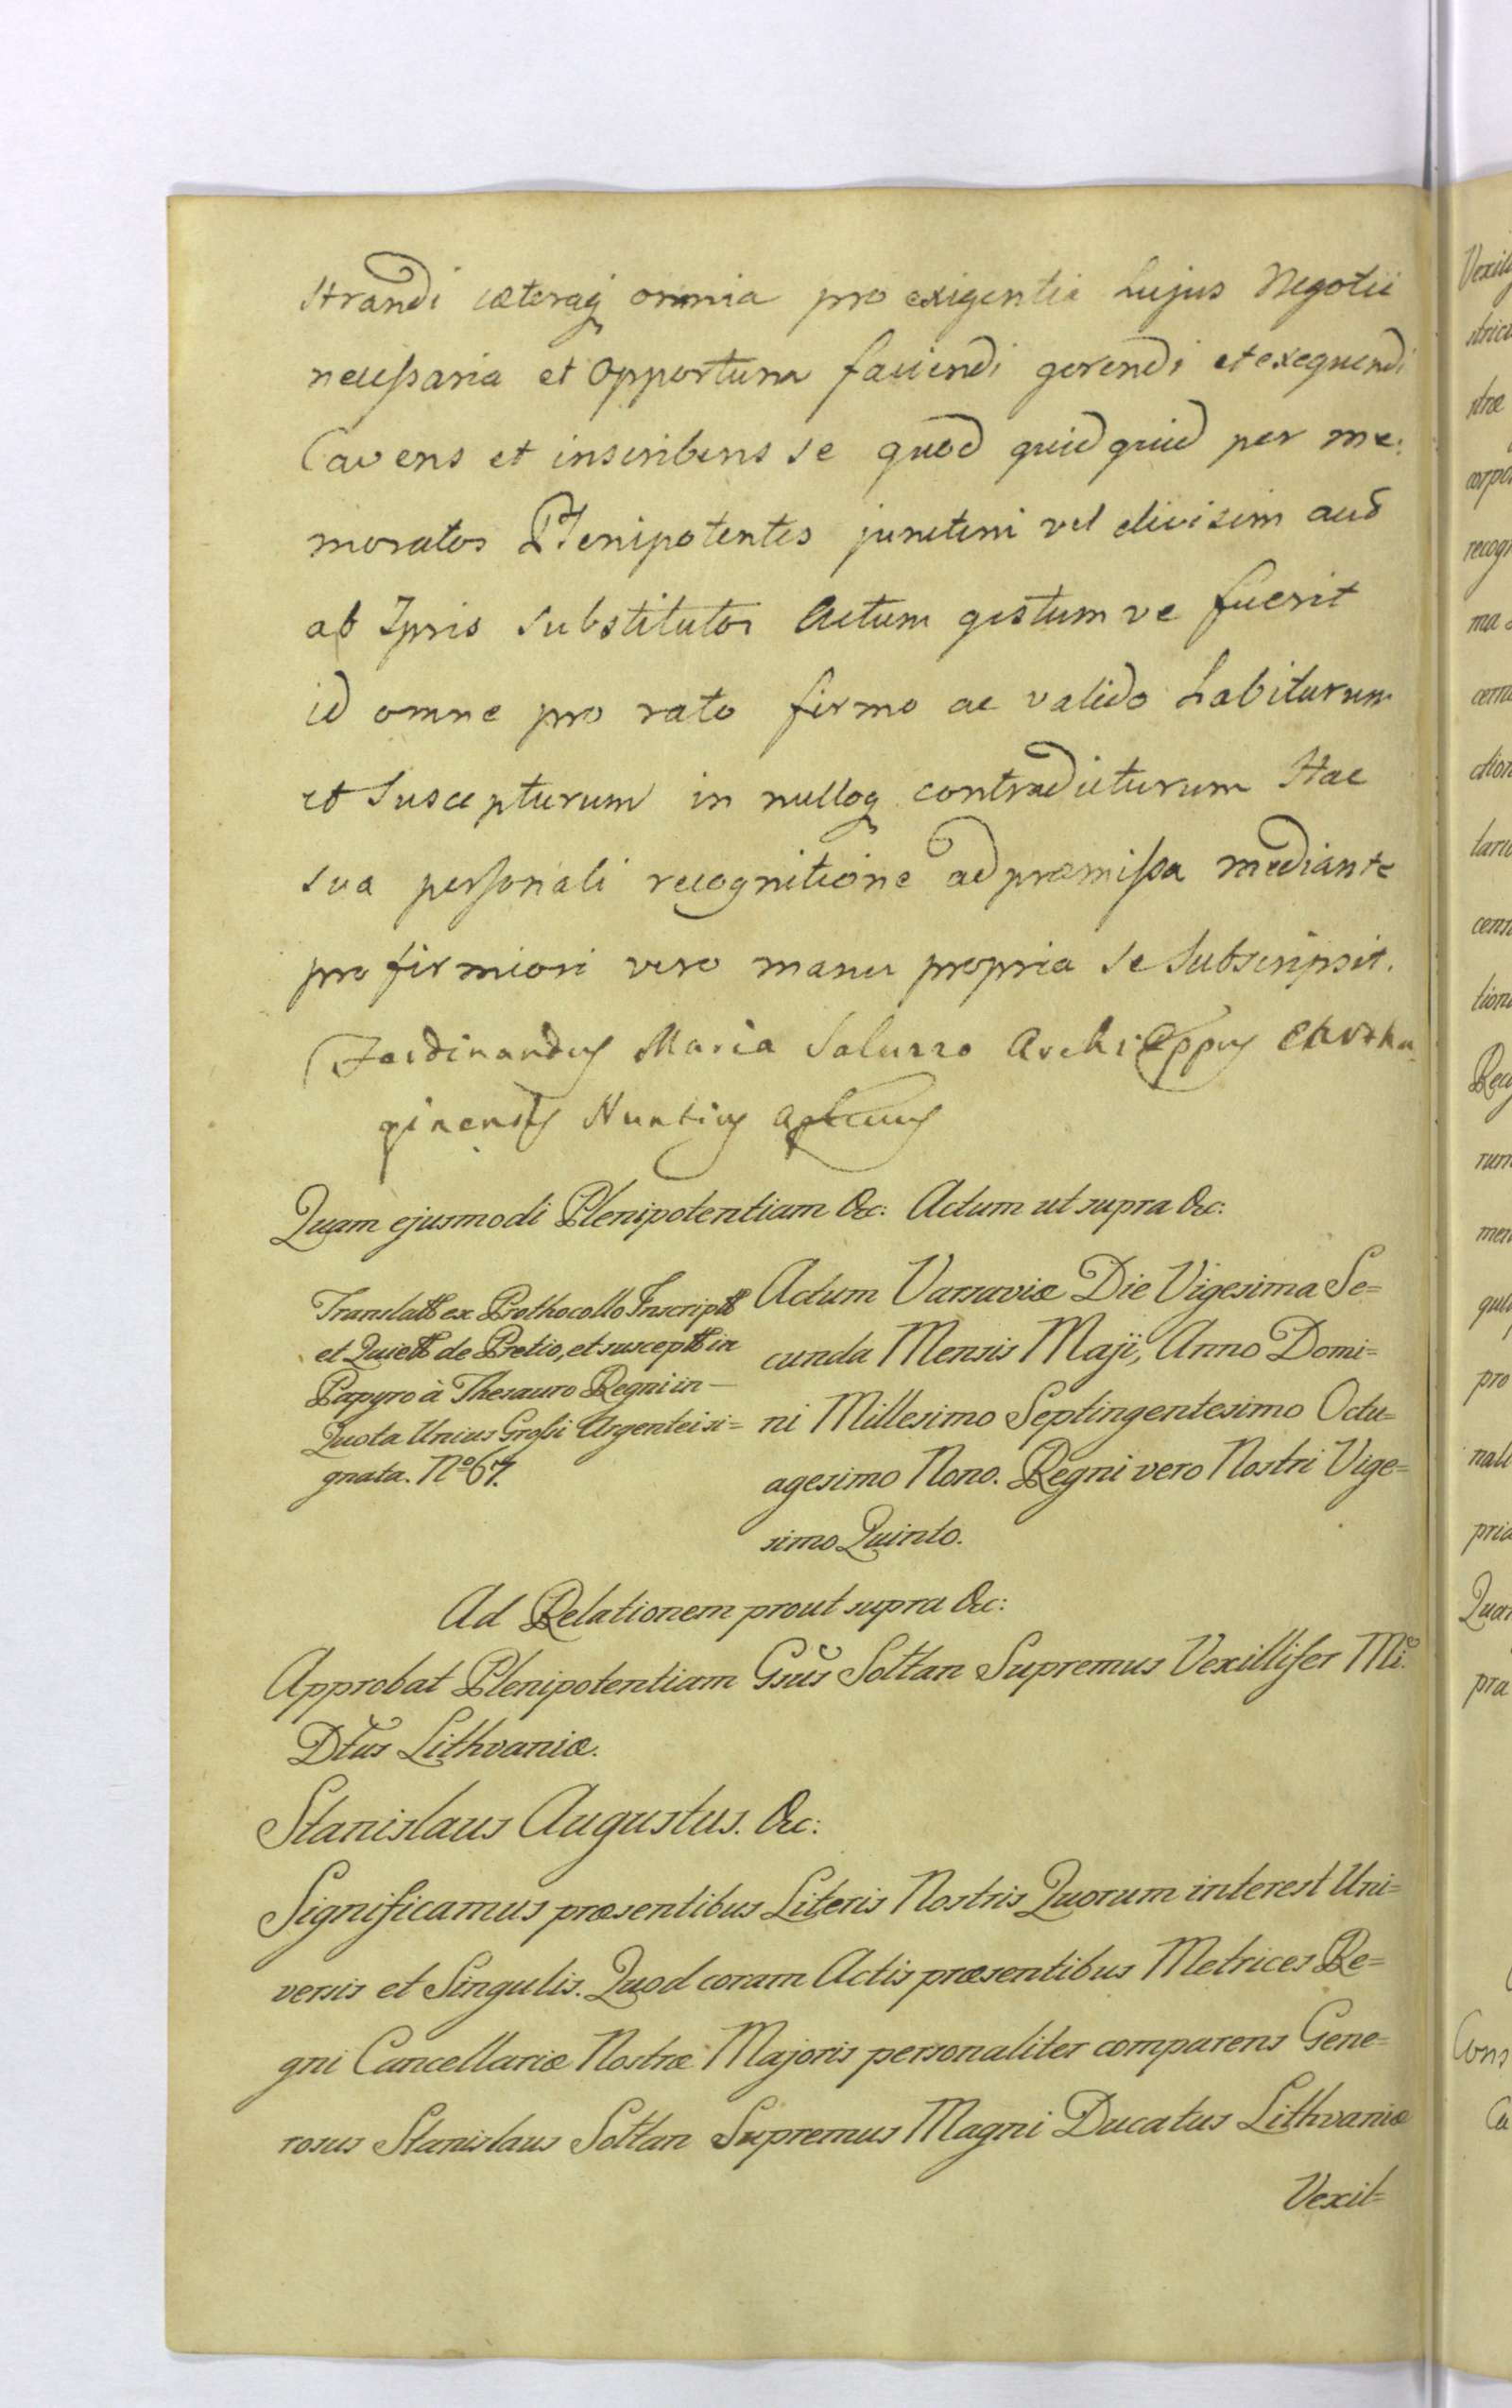 strandi cæteraq omnia pro exigentia hujus Negotii
necessaria et opportuna faciendi gerendi et exequendi
Cavens et inscribens se quod quid quid per me:
moratos Plenipotentes junctim vel divisim aud
ab Ipsis substitutos Actum gestum ve fuerit
id omne pro rato firmo ac valido habiturum
et Suscepturum in nulloq contradicturum Hac
sua personali recognitione ad præmissa mediante
pro firmiori vero manu propria se Subscripsit.
Ferdinandus Maria Saluzzo Archieppus Chartha
ginensis Nuntius
Quam ejusmodi Plenipotentiam &c: Actum ut supra &c:
Translatt ex Prothocollo Inscriptt
et Quiett de Pretio, et susceptt in
Papyro à Thesauro Regni in
Quota Unius Grossi Argentei si=
gnata. No 67.
Actum Varsaviæ Die Vigesima Se=
cunda Mensis Maji, Anno Domi=
ni Millesimo Septingentesimo Octu=
agesimo Nono. Regni vero Nostri Vige=
simo Quinto.
Ad Relationem prout supra &c:
Approbat Plenipotentiam Gsus Sołtan Supremus Vexillifer Mi
Dtus Lithvaniæ.
Stanislaus Augustus. &c:
Significamus præsentibus Literis Nostris Quorum interest Uni=
versis et Singulis. Quod coram Actis præsentibus Metrices Re=
gni Cancellariæ Nostræ Majoris personaliter comparens Gene=
rosus Stanislaus Sołtan Supremus Magni Ducatus Lithvaniæ
Vexil=